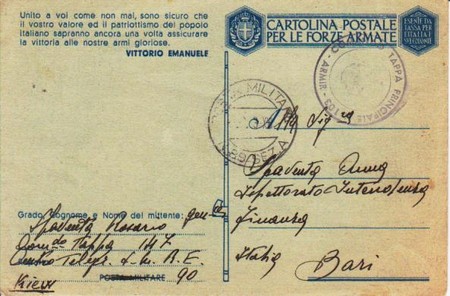 Unito a voi come non mai, sono sicuro che
il vostro valore ed il patriottismo del popolo
italiano sapranno ancora una volta assicurare
la vittoria alle nostre armi gloriose.
VITTORIO EMANUELE
CARTOLINA POSTALE
PER LE FORZE ARMATE
E' ESENTE DA
TASSA PER
L'ITALIA E
POSTA MILITARE
N. 90 SEZ. A
TAPPA PRINCIPALE
ARMIR
Alla Sig.ra
Spadenta Anna
Ispettorato Intendenza
Finanza
Italia Bari
Grado, Cognome e Nome del mittente:
Spadenta Rosario
Com.do Tappa 147
Centro Telegr. I. M. R. E.
POSTA MILITARE 90
Kiew